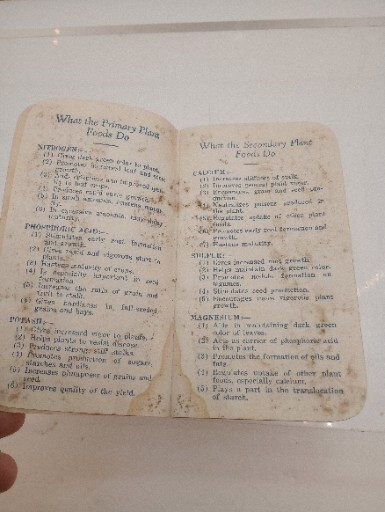 What the Primary Plant
Foods Do
NITROGEN:—
(1) Gives dark green color to plant.
(2) Promotes increased leaf and stem
growth.
in leaf crops.
PHOSPHORIC ACID:—
(1) Stimulates early root formation
and growth.
(2) rapid and vigorous start to
plants.
(3) Hastens maturity of crops.
(4) in seed
formation.
(5) Increases the ratio of grain and
fruit to stalk.
(6) Gives hardiness to fall-seeded
grains and hays.
POTASH:—
(1) Gives increased vigor to plants.
(2) Helps plants to resist disease.
(3) Produces strong, stiff stalks.
(4) Promotes production of sugar,
starches and oils.
(5) Increases plumpness of grains and
seed.
(6) Improves quality of the yield.
What the Secondary Plant
Foods Do
CALCIUM:—
(1) Increases stiffness of stalk.
(2) general plant tone.
(3) Encourages grain and seed
(4) Neutralizes poisons produced in
the plant.
(5) Regulates uptake of other plant
foods.
(6) Promotes early root formation and
growth.
(7) Hastens maturity.
SULFUR:—
(1) Gives increased root growth.
(2) Helps maintain dark green color.
(3) Promotes nodule formation on
legumes.
(4) Stimulates seed production.
(5) Encourages more vigorous plant
growth.
MAGNESIUM:—
(1) Aids in maintaining dark green
color of leaves.
(2) Acts as carrier of phosphoric acid
in the plant.
(3) Promotes the formation of oils and
fats.
(4) Regulates uptake of other plant
foods, especially calcium.
(5) Plays a part in the translocation
of starch.